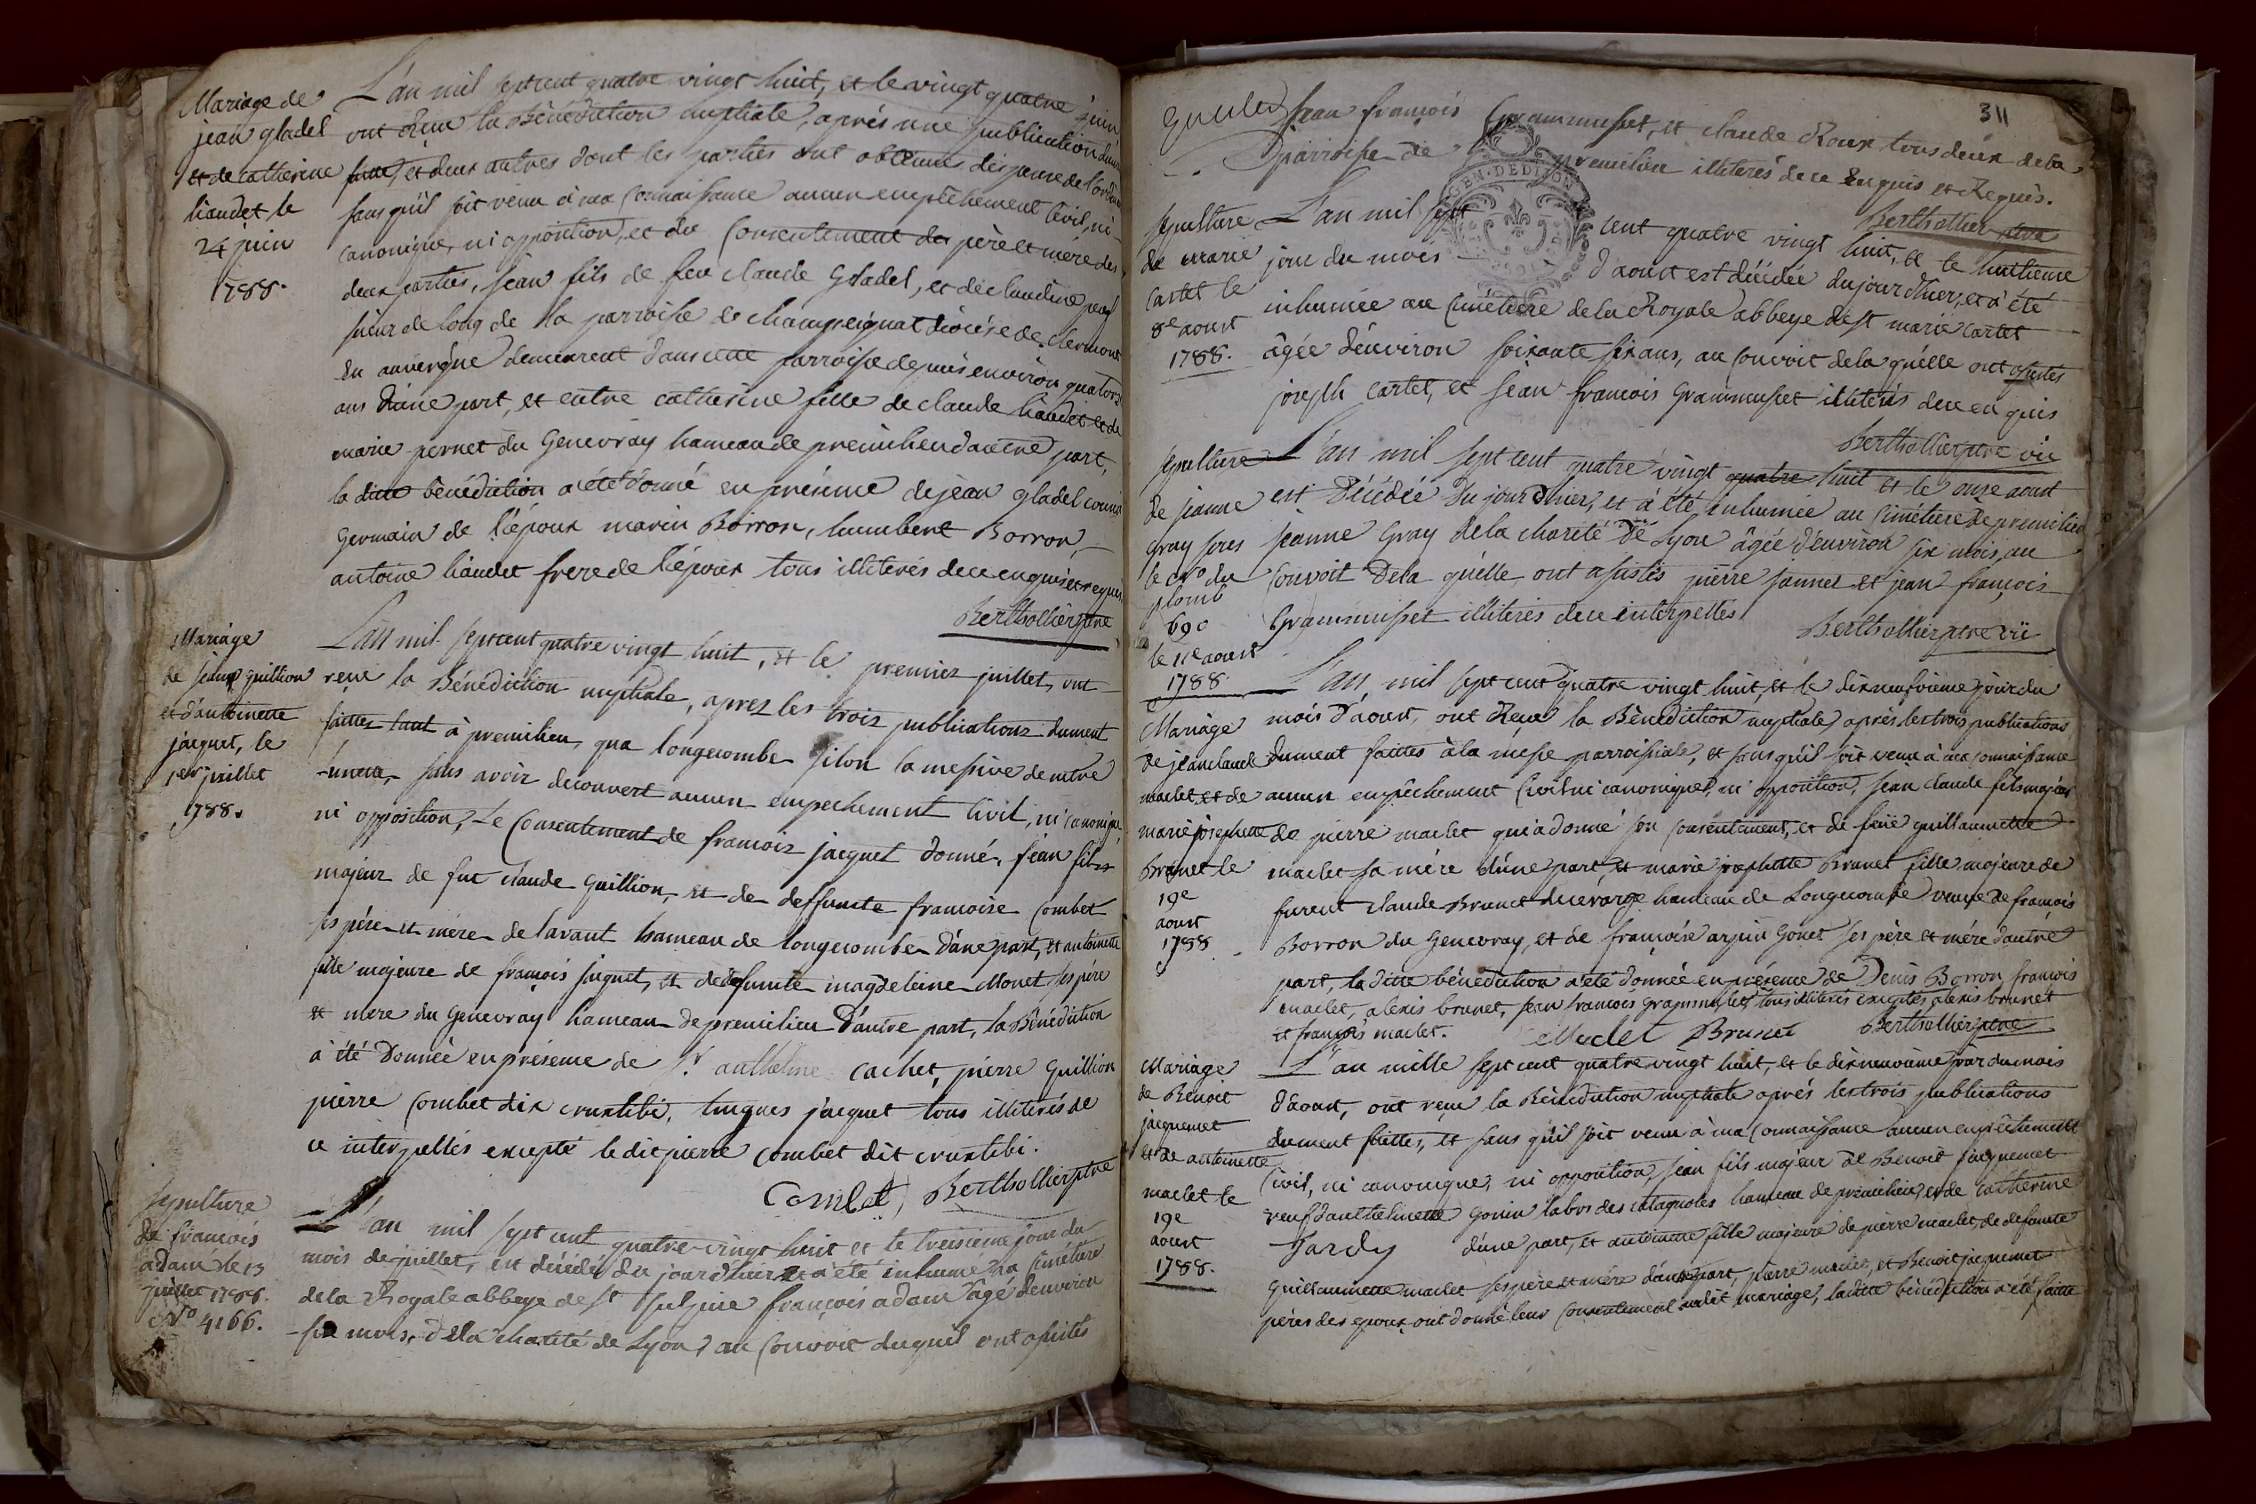 Mariage de
jean gladel
et de catherine
liaudet le
24 juin
1788.
L'an mil sept cent quatre vingt huit, et le vingt quatre juin
ont Reçu la Bénédiction nuptiale, aprés une publication dument
faitte, et deux autres dont les parties ont obtenus dispense de l'ordin
sans qu'il soit venu à ma Connaissance aucun empêchement Civil, ni
canonique, ni opposition, et du Consentement des père et mére des
deux parties, jean fils de feu claude Gladel, et de claudine
de la parroisse de champeignat diocése de Clermont
En auvergne demeurent dans cette parroisse depuis environ quatorz
ans d'une part, et entre catherine fille de claude liaudet et de
marie pernet du Genevray hameau de premilieu d'autre part,
la ditte bénédiction a été donné en présence de jean gladel cousin
Germain de l'époux marin Borron, humbert Borron,
antoine liaudet frere de l'époux tous illiterés de ce enquis et requis
Berthollier ptre
Mariage
de jean guillion
et d'antoinette
jacquet, le
1er juillet
1788.
L'an mil sept cent quatre vingt huit, et le premier juillet, ont
reçu la Bénédiction nuptiale, apres les trois publications dument
faittes tant à premilieu, qua longecombe silon la messive de
sans avoir decouvert aucun empechement Civil, ni canonique
ni opposition, Le Consentement de francois jacquet donné, jean fils
majeur de fut claude Guillion, et de deffunte francoise Combet
ses pére et mére de lavant hameau de longecombe d'une part, et antoinette
fille majeure de françois jaquet, et de defunte magdeleine Monet ses pére
et mere du Genevray hameau de premilieu d'autre part, la Bénédiction
à été Donnée en présence de Sr anthelme cachet, pierre Guillion
pierre Combet dit cruxtibi, hugues jacquet tous illiterés de
ce interpellés excepté le dit pierre Combet dit cruxtibi.
Combet, Berthollier ptre
sepulture
de francois
adam le 13
juillet 1788.
No 4166.
L'an mil sept cent quatre vingt huit et le treisieme jour du
mois de juillet, est décédé du jour d'hier et a été inhumé au Cimétiere
de la Royale abbaye de St Sulpice françois adam âgé denviron
six mois, de la charité de Lyon, au Convoit duquel ont assistés
311
jean francois Grammusset, et claude Roux tous deux de la
parroisse de premilieu illiterés de ce Enquis et Requis.
Berthollier ptre
sepulture
de marie
Cartet le
8e aoust
1788.
L'an mil sept cent quatre vingt huit, et le huitieme
jour du mois d'aoust est décédée du jour d'hier, et à été
inhumée au Cimétiere de la Royale abbaye de St marie cartet
âgée d'environ soixante six ans, au Convoit de la quélle ont assistés
joseph Cartet, et jean francois Grammusset illiterés de ce en quis
Berthollier ptre vic
sepulture
de jeanne
Gray sous
le No du
plomb
690
le 11e aoust
1788.
L'an mil sept cent quatre vingt quatre huit et le onze aoust
est décédée du jour d'hier, et à été inhumée au Cimétiere de premilieu
jeanne Gray de la charité de Lyon âgée d'environ six mois, au
Convoit de la quélle ont assistés pierre jannet et jean françois
Grammusset illiterés de ce interpellés
Berthollier ptre vic
Mariage
de jean claude
maclet et de
marie josephette
Brunet le
19e
aoust
1788
L'an, mil sept cent quatre vingt huit, et le dixneufvieme jour du
mois d'aoust, ont Reçu la Bénédiction nuptiale, aprés les trois publications
dument faittes à la messe parroissiale, et sans qu'il soit venu à ma connaissance
aucun empêchement Civil ni canonique, ni opposition, jean claude fils majeur
de pierre maclet qui a donné son consentement, et de feüe guillaumette
maclet sa mére d'une part et marie josephette Brunet fille majeure de
furent claude Brunet hameau de Longecombe veuve de françois
Borron du Genevray, et de françoise Gonet ses père et mére d'autre
part, la ditte bénédiction a été donnée en présence de Denis Borron françois
maclet, alexis brunet, jean francois Grammusset, tous illiterés exceptés alexis brunet
et françois maclet. Maclet Brunet Berthollier ptre
Mariage
de Benoit
jacquemet
et de antoinette
maclet le
19e
aoust
1788.
L'an mille sept cent quatre vingt huit, et le dixneuvieme jour du mois
d'aoust, ont reçu la Bénédiction nuptiale aprés les trois publications
dument faittes, et sans qu'il soit venu à ma Connaissance aucun empêchement
Civil, ni canonique, ni opposition, jean fils majeur de Benoit jacquemet
veuf d'anthelmette Gonin labor des catagnoles hameau de premilieu, et de catherine
Jardy d'une part, et antoinette fille majeure de pierre maclet, de defunte
Guillaumette maclet ses pére et mére d'autre part, pierre maclet, et Benoit jacquemet
péres des epoux ont donné leur Consentement audit mariage, laditte bénédiction a été faitte